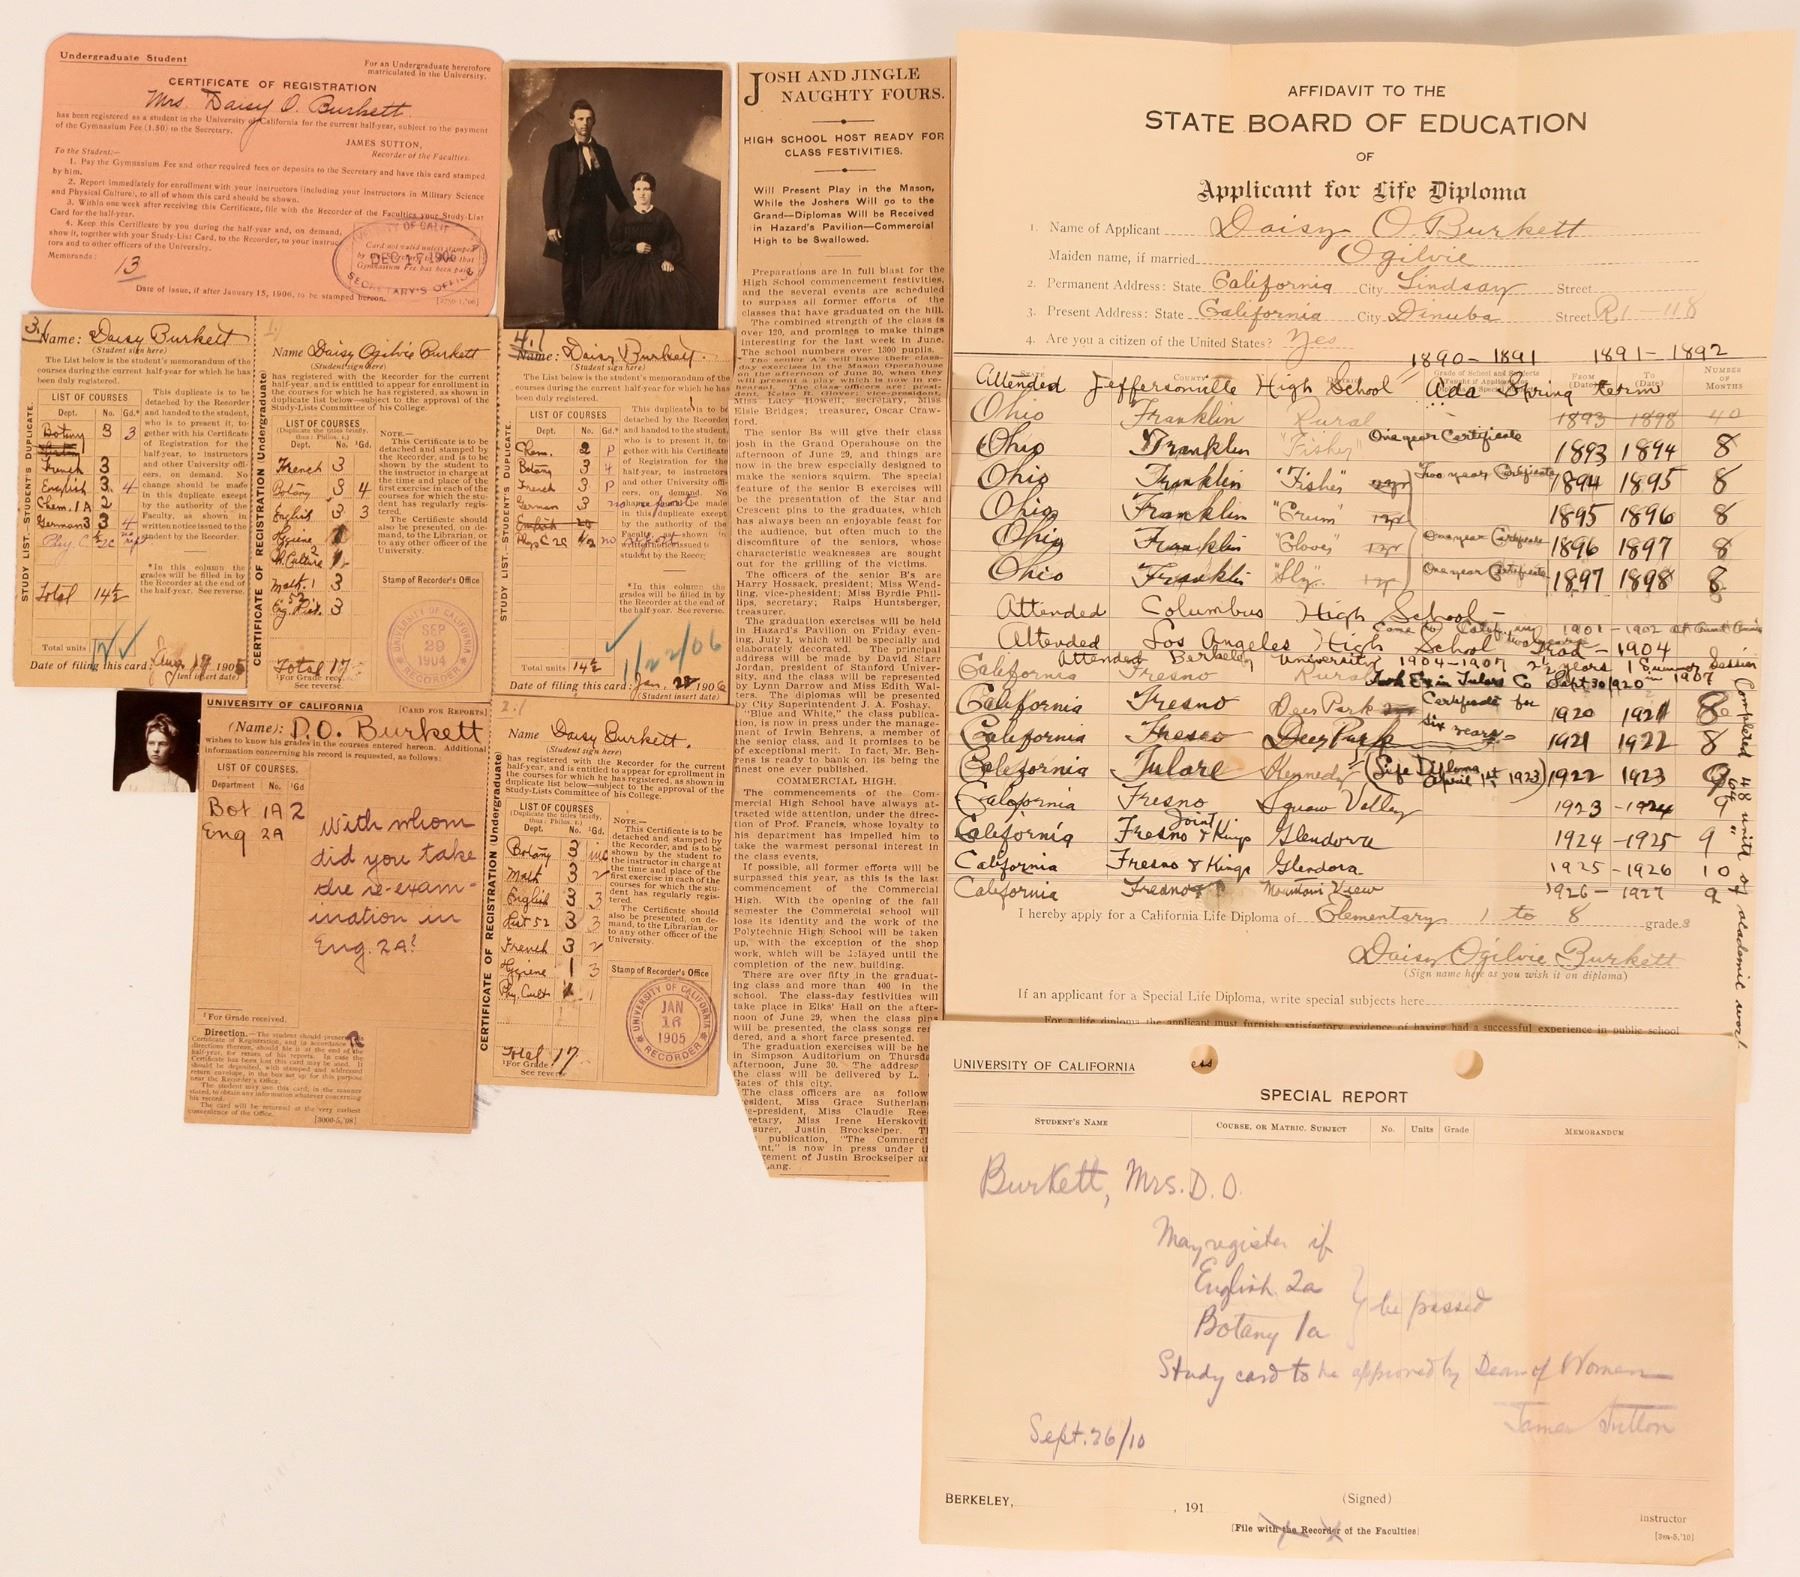 Undergraduate Student
For an Undergraduate heretofore
matriculated in the University.
CERTIFICATE OF REGISTRATION
Mrs. Daisy O. Burkett
has been registered as a student in the University of California for the current half-year, subject to the payment
of the Gymnasium Fee (1.50) to the Secretary.
JAMES SUTTON,
Recorder of the Faculties.
To the Student:—
1. Pay the Gymnasium Fee and other required fees or deposits to the Secretary and have this card stamped
by him.
2. Report immediately for enrollment with your instructors (including your instructors in Military Science
and Physical Culture), to all of whom this card should be shown.
3. Within one week after receiving this Certificate, file with the Recorder of the Faculties your Study-List
Card for the half-year.
4. Keep this Certificate by you during the half-year and, on demand,
show it, together with your Study-List Card, to the Recorder, to your instruc-
tors and to other officers of the University.
Memoranda:
13
Card not valid unless stamped
Gymnasium Fee has been paid
DEC 17 1906
SECRETARY'S OFFICE
Date of issue, if after January 15, 1906, to be stamped hereon.
3.
Name: Daisy Burkett
(Student sign here)
The List below is the student's memorandum of the
courses during the current half-year for which he has
been duly registered.
STUDY LIST. STUDENT'S DUPLICATE.
LIST OF COURSES
Dept. No. Gd.*
Botany 3 3
French 3
English 3 4
Chem. 1A 2
German 3 3 4
Phy. C 2c
Total 14½
This duplicate is to be
detached by the Recorder
and handed to the student,
who is to present it, to-
gether with his Certificate
of Registration for the
half-year, to instructors
and other University offi-
cers, on demand. No
change should be made
in this duplicate except
by the authority of the
Faculty, as shown in
written notice issued to the
student by the Recorder.
*In this column the
grades will be filled in by
the Recorder at the end of
the half-year. See reverse.
Total units
Date of filing this card: Aug 17 1905
(Student insert date)
Name Daisy Ogilvie Burkett
(Student sign here)
has been registered with the Recorder for the current
half-year, and is entitled to appear for enrollment in
the courses for which he has registered, as shown in
duplicate list below—subject to the approval of the
Study-Lists Committee of his College.
CERTIFICATE OF REGISTRATION (Undergraduate)
LIST OF COURSES
(Duplicate the titles briefly,
thus: Philos. 2.)
Dept. No. ¹Gd.
French 3
Botany 3 4
English 3 3
Hygiene 1
Ph. Culture 2
Math. 1 3
Eng. 52 3
Total 17
(¹For Grade
See reverse.
NOTE.—
This Certificate is to be
detached and stamped by
the Recorder, and is to be
shown by the student to
the instructor in charge at
the time and place of the
first exercise in each of the
courses for which the stu-
dent has regularly regis-
tered.
The Certificate should
also be presented, on de-
mand, to the Librarian, or
to any other officer of the
University.
Stamp of Recorder's Office
UNIVERSITY OF CALIFORNIA
SEP 29 1904
RECORDER
4.
Name: Daisy Burkett.
(Student sign here)
The List below is the student's memorandum of the
courses during the current half-year for which he has
been duly registered.
STUDY LIST.—STUDENT'S DUPLICATE.
LIST OF COURSES
Dept. No. Gd.*
Chem. 2 P
Botany 3 4
French 3 P
German 3 no report
English 20
Phys C 2c ½ no report
This duplicate is to be
detached by the Recorder
and handed to the student,
who is to present it, to-
gether with his Certificate
of Registration for the
half-year, to instructors
and other University offi-
cers, on demand. No
by the authority of the
Faculty, as shown in
written notice issued to
student by the Recor
*In this column the
grades will be filled in by
the Recorder at the end of
the half-year. See reverse.
1/22/06
Total units 14½
Date of filing this card: Jan. 22 1906
(Student insert date)
UNIVERSITY OF CALIFORNIA [CARD FOR REPORTS]
(Name): D.O. Burkett
wishes to know his grades in the courses entered hereon. Additional
information concerning his record is requested, as follows:
LIST OF COURSES.
Department No. ¹Gd
Bot 1A 2
Eng 2A
With whom
did you take
the re-exam-
ination in
Eng. 2A?
¹For Grade received.
Direction.—The student should present
Certificate of Registration, and in accordance
directions therein, should file at the end of the
half-year, for return of his reports. In case the
Certificate has been lost this card may be used. It
should be deposited, with stamped and addressed
return envelope, in the box set up for this purpose
near the Recorder's Office.
The student may use this card, in the manner
stated, to obtain any information whatever concerning
his record.
The card will be returned at the very earliest
convenience of the Office. [3000-5,'08]
Name Daisy Burkett.
(Student sign here)
has been registered with the Recorder for the current
half-year, and is entitled to appear for enrollment in
the courses for which he has registered, as shown in
duplicate list below—subject to the approval of the
Study-Lists Committee of his College.
CERTIFICATE OF REGISTRATION (Undergraduate)
LIST OF COURSES
(Duplicate the titles briefly,
thus: Philos. 2.)
Dept. No. ¹Gd.
Botany 3 inc
Math 3 2
English 3 3
Hist 52 3 3
French 3 2
Hygiene 1 3
Phy. Cult 1
Total 17
¹For Grade
See reverse
NOTE.—
This Certificate is to be
detached and stamped by
the Recorder, and is to be
shown by the student to
the instructor in charge at
the time and place of the
first exercise in each of the
courses for which the stu-
dent has regularly regis-
tered.
The Certificate should
also be presented, on de-
mand, to the Librarian, or
to any other officer of the
University.
Stamp of Recorder's Office
UNIVERSITY OF CALIFORNIA
JAN 16 1905
RECORDER
JOSH AND JINGLE
NAUGHTY FOURS.
HIGH SCHOOL HOST READY FOR
CLASS FESTIVITIES.
Will Present Play in the Mason,
While the Joshers Will go to the
Grand—Diplomas Will be Received
in Hazard's Pavilion—Commercial
High to be Swallowed.
Preparations are in full blast for the
High School commencement festivities,
and the several events are scheduled
to surpass all former efforts of the
classes that have graduated on the hill.
The combined strength of the class is
over 120, and promises to make things
interesting for the last week in June.
The school numbers over 1300 pupils.
The senior A's will have their class-
day exercises in the Mason Operahouse
on the afternoon of June 30, when they
will present a play which is now in re-
hearsal. The class officers are: president,
Kelso R. Glover; vice-president,
Miss Lucy Howell; secretary, Miss
Elsie Bridges; treasurer, Oscar Craw-
ford.
The senior B's will give their class
josh in the Grand Operahouse on the
afternoon of June 29, and things are
now in the brew especially designed to
make the seniors squirm. The special
feature of the senior B exercises will
be the presentation of the Star and
Crescent pins to the graduates, which
has always been an enjoyable feast for
the audience, but often much to the
discomfiture of the seniors, whose
characteristic weaknesses are sought
out for the grilling of the victims.
The officers of the senior B's are
Harry Hossack, president; Miss Wend-
ling, vice-phesident; Miss Byrdie Phil-
lips, secretary; Ralps Huntsberger,
treasurer.
The graduation exercises will be held
in Hazard's Pavilion on Friday even-
ing, July 1, which will be specially and
elaborately decorated. The principal
address will be made by David Starr
Jordan, president of Stanford Univer-
sity, and the class will be represented
by Lynn Darrow and Miss Edith Wal-
ters. The diplomas will be presented
by City Superintendent J. A. Foshay.
"Blue and White," the class publica-
tion, is now in press under the manage-
ment of Irwin Behrens, a member of
the senior class, and it promises to be
of exceptional merit. In fact, Mr. Beh-
rens is ready to bank on its being the
finest one ever published.
COMMERCIAL HIGH.
The commencements of the Com-
mercial High School have always at-
tracted wide attention, under the direc-
tion of Prof. Francis, whose loyalty to
his department has impelled him to
take the warmest personal interest in
the class events.
If possible, all former efforts will be
surpassed this year, as this is the last
commencement of the Commercial
High. With the opening of the fall
semester the Commercial school will
lose its identity and the work of the
Polytechnic High School will be taken
up, with the exception of the shop
work, which will be delayed until the
completion of the new building.
There are over fifty in the graduat-
ing class and more than 400 in the
school. The class-day festivities will
take place in Elks' Hall on the after-
noon of June 29, when the class pins
will be presented, the class songs ren-
dered, and a short farce presented.
The graduation exercises will be he
in Simpson Auditorium on Thursda
afternoon, June 30. The address
the class will be delivered by L.
Gates of this city.
The class officers are as follow
resident, Miss Grace Sutherlan
e-president, Miss Claudie Ree
retary, Miss Irene Herskovit
surer, Justin Brockseiper. T
publication, "The Commerc
nt," is now in press under t
ement of Justin Brockseiper an
ang.
AFFIDAVIT TO THE
STATE BOARD OF EDUCATION
OF
Applicant for Life Diploma
1. Name of Applicant Daisy O Burkett
Maiden name, if married Ogilvie
2. Permanent Address: State California City Lindsay Street
3. Present Address: State California City Dinuba Street R1-118
4. Are you a citizen of the United States? Yes
1890-1891 1891-1892
COUNTY FROM (Date) TO (Date) NUMBER OF MONTHS
Attended Jeffersonville High School Ada Spring term
Ohio Franklin Rural 1893 1898 40
Ohio Franklin "Fisher" One year Certificate 1893 1894 8
Ohio Franklin "Fisher" Two years Certificate 1894 1895 8
Ohio Franklin "Crum" 1 yr 1895 1896 8
Ohio Franklin "Glover" 1 yr One year Certificate 1896 1897 8
Ohio Franklin "Sly" 1 yr One year Certificate 1897 1898 8
Attended Columbus High School —
Came to California 1901-1902
Attended Los Angeles High School Grad – 1904
Attended Berkeley University 1904-1907 2½ years 1 Summer Session in 1907
California Fresno Rural Took Ex in Tulare Co Sept 30 1920
California Fresno Deer Park Certificate for six years 1920 1921 8
California Fresno Deer Park 1921 1922 8
California Tulare Kennedy (Life Diploma April 1st 1923) 1922 1923 9
California Fresno Squaw Valley 1923 -1924 9
California Fresno & Kings Joint Glendora 1924 -1925 9
California Fresno & Kings Glendora 1925 -1926 10
California Fresno Mountain View 1926 - 1927 9
Completed 48 units of academic work
I hereby apply for a California Life Diploma of Elementary 1 to 8 grades
Daisy Ogilvie Burkett
(Sign name here as you wish it on diploma)
If an applicant for a Special Life Diploma, write special subjects here
For a life diploma the applicant must furnish satisfactory evidence of having had a successful experience in public school
UNIVERSITY OF CALIFORNIA
SPECIAL REPORT
STUDENT'S NAME COURSE, OR MATRIC. SUBJECT No. Units Grade MEMORANDUM
Burkett, Mrs. D. O.
May register if
English 2a
Botany 1a } be passed
Study card to be approved by Dean of Women
James Sutton
Sept. 26/10
BERKELEY, , 191
(Signed)
Instructor
[File with the Recorder of the Faculties]
[3m-5,'10]